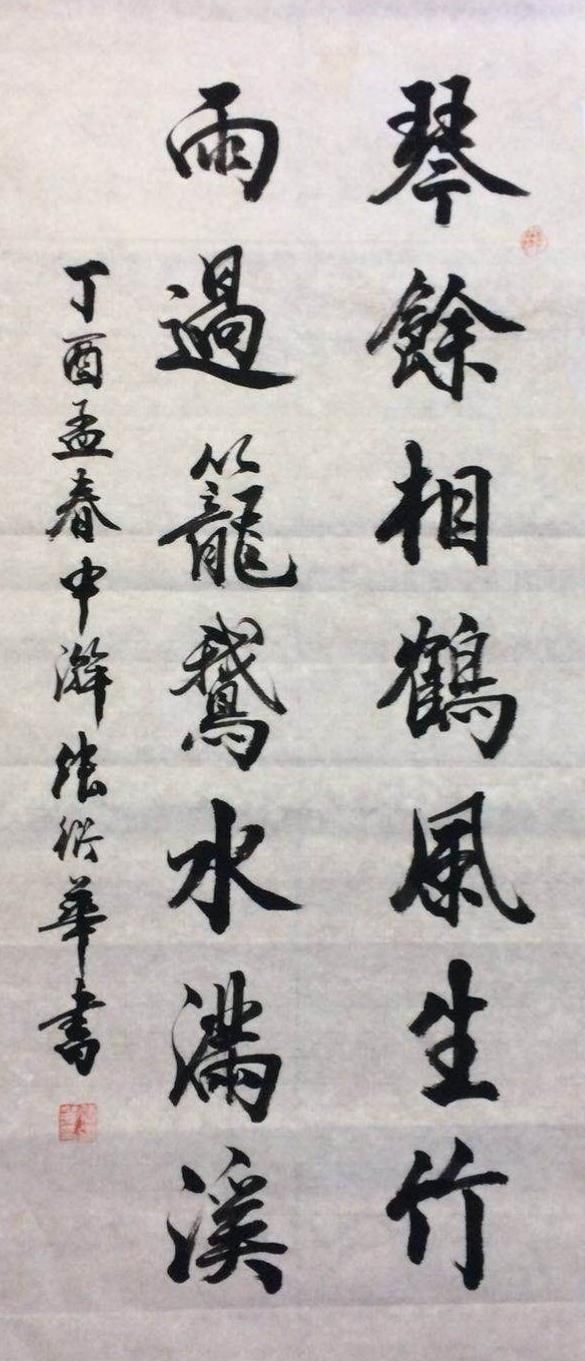 琴餘相鶴風生竹
雨過籠鵝水滿溪
丁酉孟春中澣張衍華書